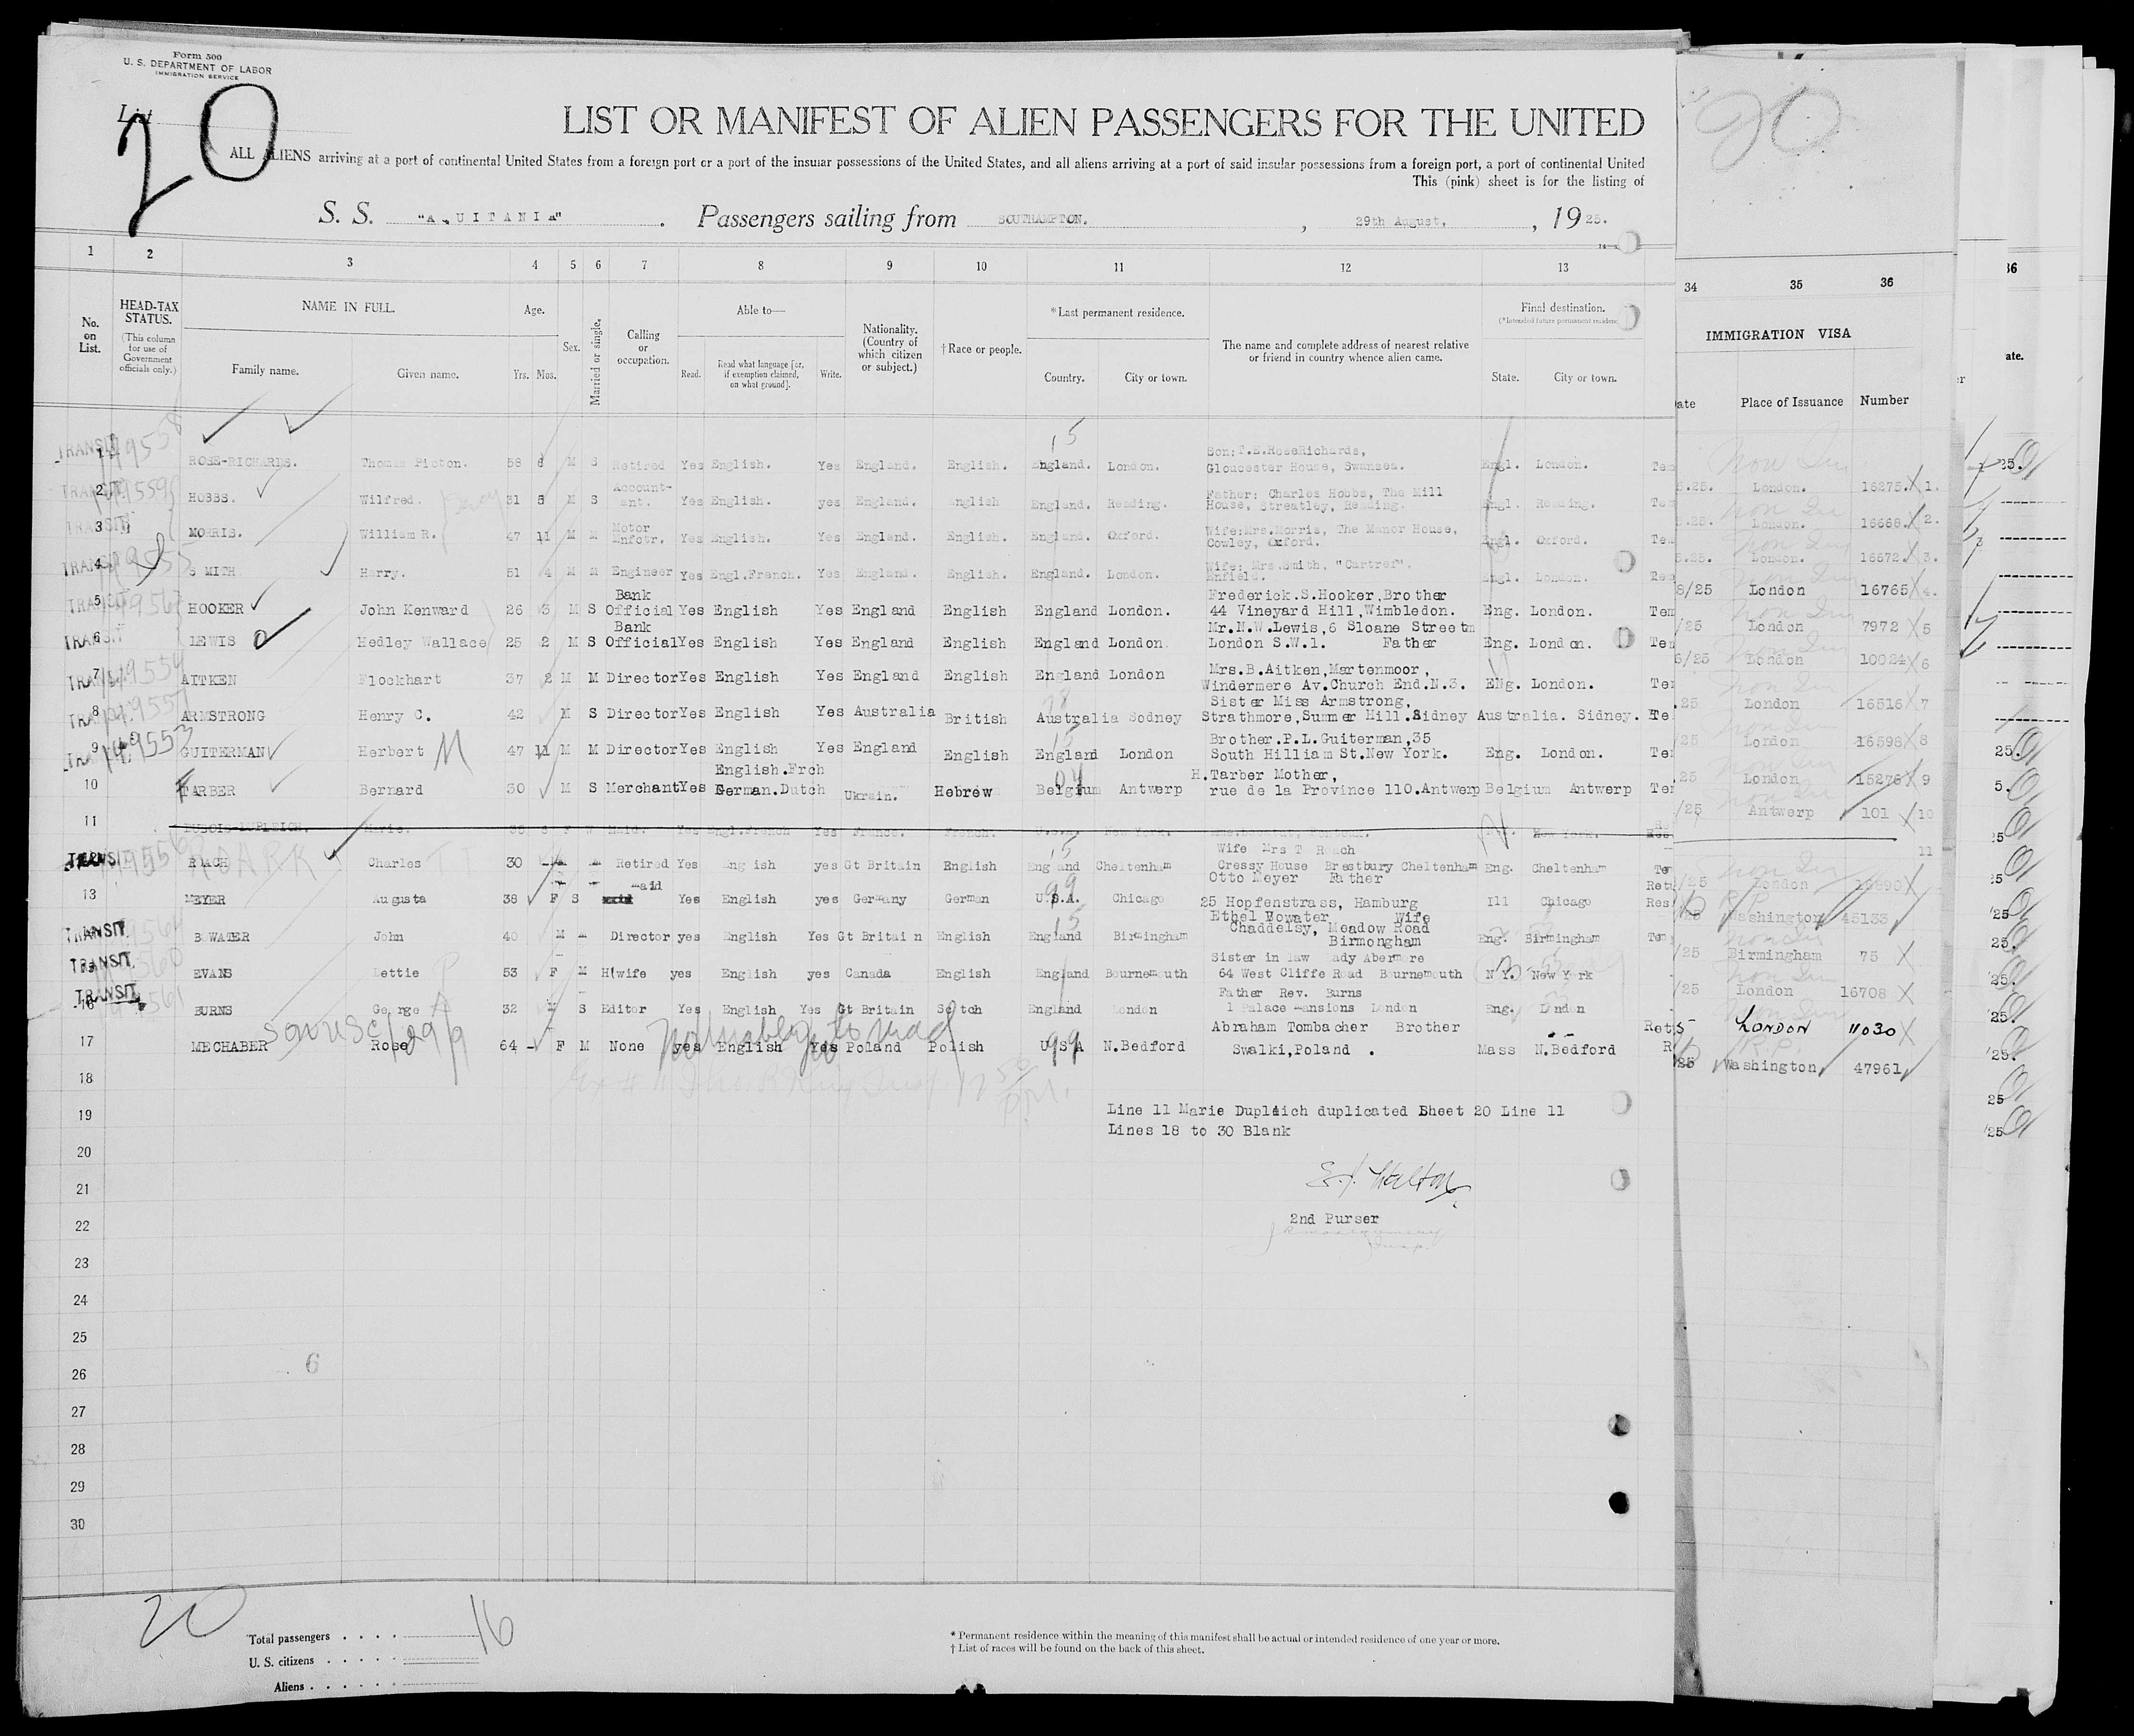 Form 500
U. S. DEPARTMENT OF LABOR
IMMIGRATION SERVICE
List
20
LIST OR MANIFEST OF ALIEN PASSENGERS FOR THE UNITED
ALL ALIENS arriving at a port of continental United States from a foreign port or a port of the insular possessions of the United States, and all aliens arriving at a port of said insular possessions from a foreign port, a port of continental United
This (pink) sheet is for the listing of
S. S. "AQUITANIA" . Passengers sailing from SOUTHAMPTON. , 29th August, , 1925.
1 2 3 4 5 6 7 8 9 10 11 12 13
No. on List. HEAD-TAX STATUS. (This column for use of Government officials only.) NAME IN FULL. Family name. Given name. Age. Yrs. Mos. Sex. Married or single. Calling or occupation. Able to— Read. Read what language [or, if exemption claimed, on what ground]. Write. Nationality. (Country of which citizen or subject.) †Race or people. *Last permanent residence. Country. City or town. The name and complete address of nearest relative or friend in country whence alien came. Final destination. (*Intended future permanent residence) State. City or town.
34 35 36
IMMIGRATION VISA
ate Place of Issuance Number
36
ate.
TRANSIT 1 ROSE-RICHARDS. Thomas Picton. 58 6 M S Retired Yes English. Yes England. English. England. London. Son:T.E.RoseRichards, Gloucester House, Swansea. Engl. London. Tem
5.25. London. 16275. X 1.
TRANSIT 2 HOBBS. Wilfred. 31 5 M S Account-ant. Yes English. yes England. English England. Reading. Father: Charles Hobbs, The Mill House, Streatley, Reading. Engl. Reading. Tem
.25. London. 16668. X 2.
TRANSIT 3 MORRIS. William R. 47 11 M M Motor Mnfctr. Yes English. Yes England. English. England. Oxford. Wife:Mrs.Morris, The Manor House, Cowley, Oxford. Engl. Oxford. Tem
.25. London. 16672. X 3.
TRANSIT 4 SMITH Harry. 51 4 M M Engineer Yes Engl.French. Yes England. English. England. London. Wife: Mrs.Smith, "Cartref". Enfield. Engl. London. Tem
8/25 London 16765 X 4.
TRANSIT 5 HOOKER John Kenward 26 3 M S Bank Official Yes English Yes England English England London. Frederick.S.Hooker,Brother 44 Vineyard Hill,Wimbledon. Eng. London. Tem
/25 London 7972 X 5
TRANSIT 6 LEWIS Hedley Wallace 25 2 M S Bank Official Yes English Yes England English England London Mr.N.W.Lewis,6 Sloane Street London S.W.1. Father Eng. London. Tem
6/25 London 10024 X 6
7 AITKEN Flockhart 37 2 M M Director Yes English Yes England English England London Mrs.B.Aitken,Martenmoor, Windermere Av.Church End.N.3. ENg. London. Tem
.25 London 16516 X 7
8 ARMSTRONG Henry C. 42 M S Director Yes English Yes Australia British Australia Sodney Sister Miss Armstrong, Strathmore,Summer Hill.Sidney Australia. Sidney. Te
/25 London 16598 X 8
9 149553 GUITERMAN Herbert M 47 11 M M Director Yes English Yes England English England London Brother.P.L.Guiterman,35 South Hilliam St.New York. Eng. London. Te
.25 London 15276 X 9
10 TARBER Bernard 30 M S Merchant Yes English.Frch German.Dutch Ukrain. Hebrew Belgium Antwerp H.Tarber Mother, rue de la Province 110.Antwerp Belgium Antwerp Te
/25 Antwerp 101 X 10
11 Marie. Maid. Yes Engl.French Yes France. French. U.S.A. New York. New York.
11
TRANSIT ROACH ROARK Charles 30 Retired Yes English yes Gt Britain English England Cheltenham Wife Mrs T Roach Cressy House Prestbury Cheltenham Eng. Cheltenham Te
/25 London X
13 MEYER Augusta 38 F S maid Yes English yes Germany German U.S.A. Chicago Otto Meyer Father 25 Hopfenstrass, Hamburg Ill Chicago Res
Washington 45133
TRANSIT. BOWATER John 40 M Director yes English Yes Gt Britain English England Birmingham Ethel Bowater Wife Chaddelsy, Meadow Road Birmongham Eng. Birmingham Tem
/25 Birmingham 75 X
TRANSIT. EVANS Lettie 53 F M H|wife yes English yes Canada English England Bournemouth Sister in law Lady Abermore 64 West Cliffe Road Bournemouth N Y. New York
/25 London 16708 X
TRANSIT. 16 BURNS George 32 M S Editor Yes English Yes Gt Britain Scotch England London Father Rev. Burns 1 Palace Mansions London Eng. London
LONDON 11030 X
17 MECHABER Rose 64 - F M None yes English Yes Poland Polish U S A N.Bedford Abraham Tombacher Brother Swalki,Poland . Mass N.Bedford Ret
25 Washington 47961
18
19 Line 11 Marie Dupleich duplicated Sheet 20 Line 11
Lines 18 to 30 Blank
20
21
22 2nd Purser
23
24
25
26 6
27
28
29
30
20
Total passengers . . . . 16
U. S. citizens . . . . .
Aliens . . . . . .
* Permanent residence within the meaning of this manifest shall be actual or intended residence of one year or more.
† List of races will be found on the back of this sheet.